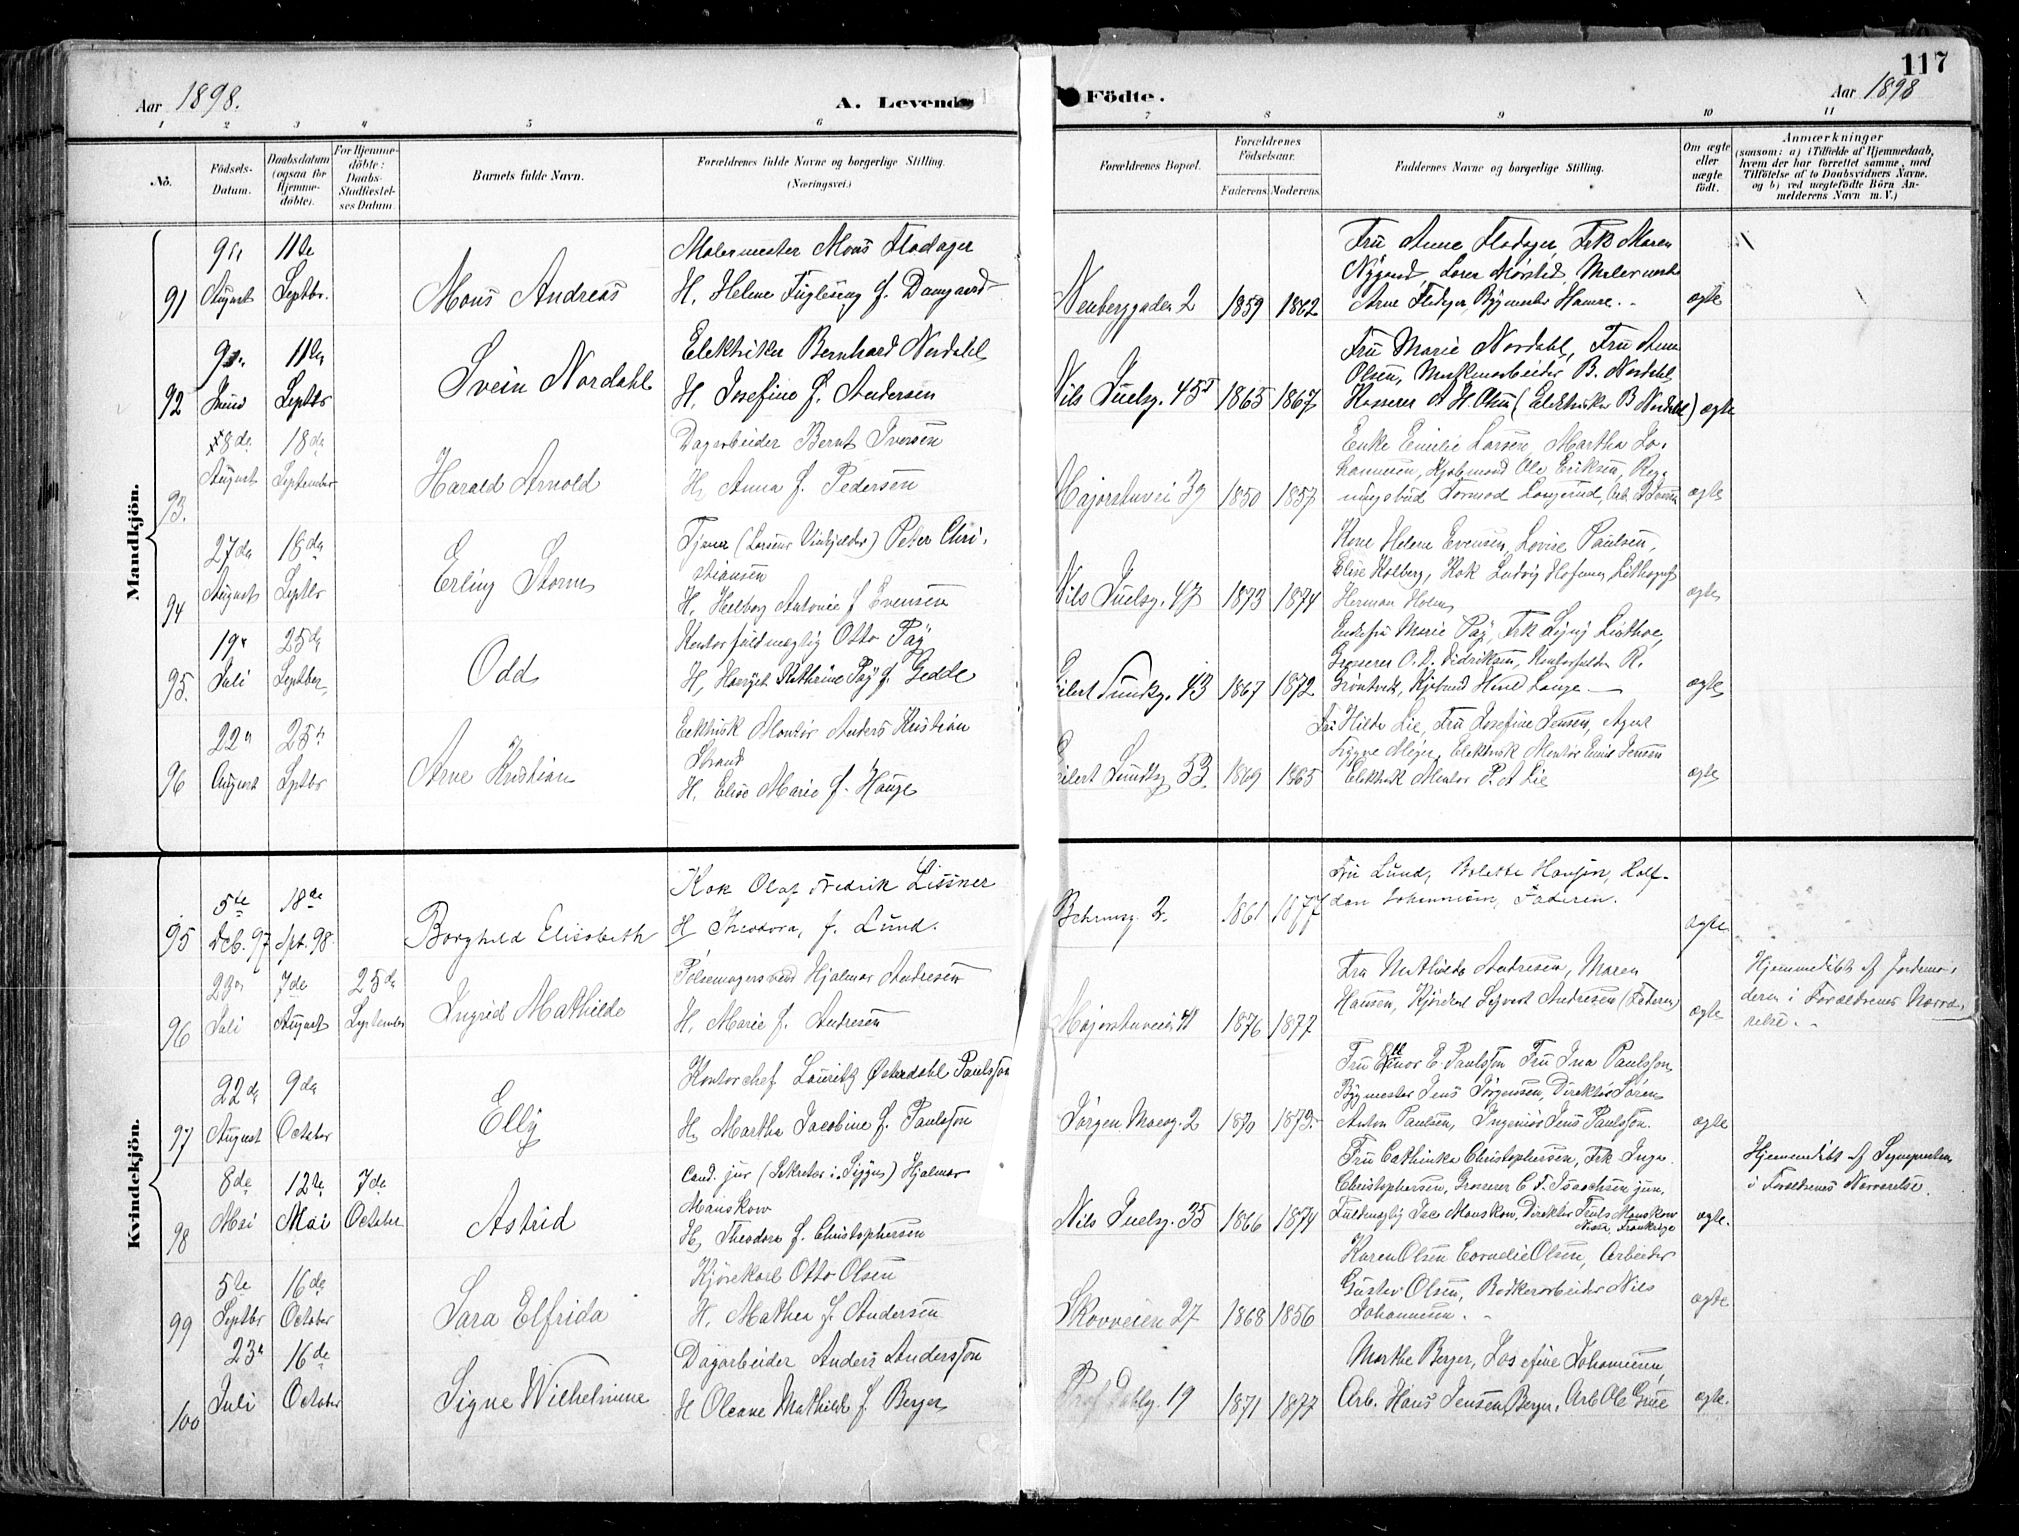 117
Aar 1898.
A. Levende
Födte.
Aar 1898
1 2 3 4 5 6 7 8 9 10 11
No.
Födsels-Datum.
Daabsdatum (ogsaa for Hjemme-döbte).
For Hjemme-döbte: Daabs-Stadfæstel-ses Datum.
Barnets fulde Navn.
Forældrenes fulde Navne og borgerlige Stilling.
(Næringsvei.)
Forældrenes Bopæl.
Forældrenes Födselsaar.
Faderens. Moderens.
Faddernes Navne og borgerlige Stilling.
Om ægte eller uægte födt.
Anmærkninger
(saasom: a) i Tilfælde af Hjemmedaab,
hvem der har forrettet samme, med
Tilföielse af to Daabsvidners Navne.
og b) ved uægtefödte Börn An-
melderens Navn m. V.)
Mandkjön.
91 August 11te Septbr. Mons Andreas
Malermester Mons Flodager
H. Helene Fuglesang f. Damgaard
Neuberggaden 2 1859 1862
Fru Anne Flodager, Frk Maren
Nygaard,
ægte
92 Juni 11te Septbr Svein Nordahl
Elektriker Bernhard Nordahl
H. Josefine f. Andersen
Nils Juelsg. 45 1865 1867
Fru Marie Nordahl, Fru Anna
Olsen, B. Nordahl
(Elektriker B Nordahl) ægte
93. 8de August 18de September Harald Arnold
Dagarbeider Bernt Iversen
H. Anna f. Pedersen
Majorstuvei 39 1850 1857
Enke Emilie Larsen, Martha Jo-
hannesen, Kjøbmand Ole Eriksen,
ægte
94 27de August 18de Septbr Erling Storm
Tjener (Larsens Vinkjelder) Peter Chri-
stiansen
H. Helborg Antonie f Evensen
Nils Juelsg. 47 1873 1874
Kone Helene Evensen, Lovise Paulsen,
Elise Kolberg, Kok Ludvig Lithograf
Herman Holm
ægte
95. 19 Juli 25de Septber Odd
Kontorfuldmægtig Otto Pay
H. Kathrine Pay f. Gedde
Eilert Sundtsg. 43 1867 1872
Marie Pay, Frk
Grosserer O. D. Didriksen, R.
ægte
96 22 August 25 Septbr Arne Kristian
Elektrisk Montør Anders Kristian
Strand
H. Elise Marie f. Hauge
Eilert Sundtsg 53. 1869 1865
Fru Hilda Lie, Fru Josefine Jensen, Agent
Elektrisk Montør Emil Jensen
Elektrisk Montør P. A Lie
ægte
Kvindekjön.
95 5te Dcb. 97 18de Spt. 98. Borghild Elisabeth
Kok Olaf Fredrik Lissner
H Theodora, f. Lund.
Behrensg. 2. 1861 1877
Fru Lund, Bolette Hansen, Half-
dan Johannesen, Faderen.
ægte
96 Juli 7de August 25de September Ingrid Mathilde
Pølsemagersvend Hjalmar Andresen
H. Marie f. Andresen
Majorstuveien 1876 1877
Fru Mathilde Andresen, Maren
Hansen, Sigvart Andresen (Faderen)
ægte
Hjemmedøbt af Jordemo-
deren i Forældrenes Nærvæ-
relse.
97 22de August 9de October Elly
Kontorchef Lauritz Østerdahl Paulsson
H. Martha Jacobine f. Paulsson
Jørgen Moesg. 2 1870 1873.
Fru Ellinor E. Paulsson Fru Ina Paulsson,
Bygmester Jens Jørgensen, Direktør Søren
Anton Paulsen, Ingeniør Jens Paulsson.
ægte
98 8de Mai 12te Mai 7de October Astrid
Cand. jur (Sekretær i Hjalmar
Manskow
H. Theodora f. Christophersen
Nils Juelsg. 35 1866 1874
Fru Cathinka Christophersen, Frk Inga
Christophersen, Grosserer C F. Isaachsen jun.
Fuldmægtig Isc Manskow, Direktør Truls Manskow
Nice, Frankrige
ægte.
Hjemmedøbt af Sognepresten
i Forældrenes Nærværelse.
99 5te Septbr 16de October Sara Elfrida
Kjørekarl Otto Olsen
H. Mathea f. Andersen
Skovveien 27 1868 1856
Karen Olsen Cornelie Olsen, Arbeider
Gustav Olsen, Bødkerarbeider Nils
Johannesen.
ægte
100 23 Juli 16de October Signe Wilhelmine
Dagarbeider Anders Andersson
H Oleane Mathilde f Berger
Prof Dahlsg. 19 1871 1877
Marthe Berger, Josefine Johannesen,
Arb. Hans Jensen Berger, Arb Ole Grue
ægte.